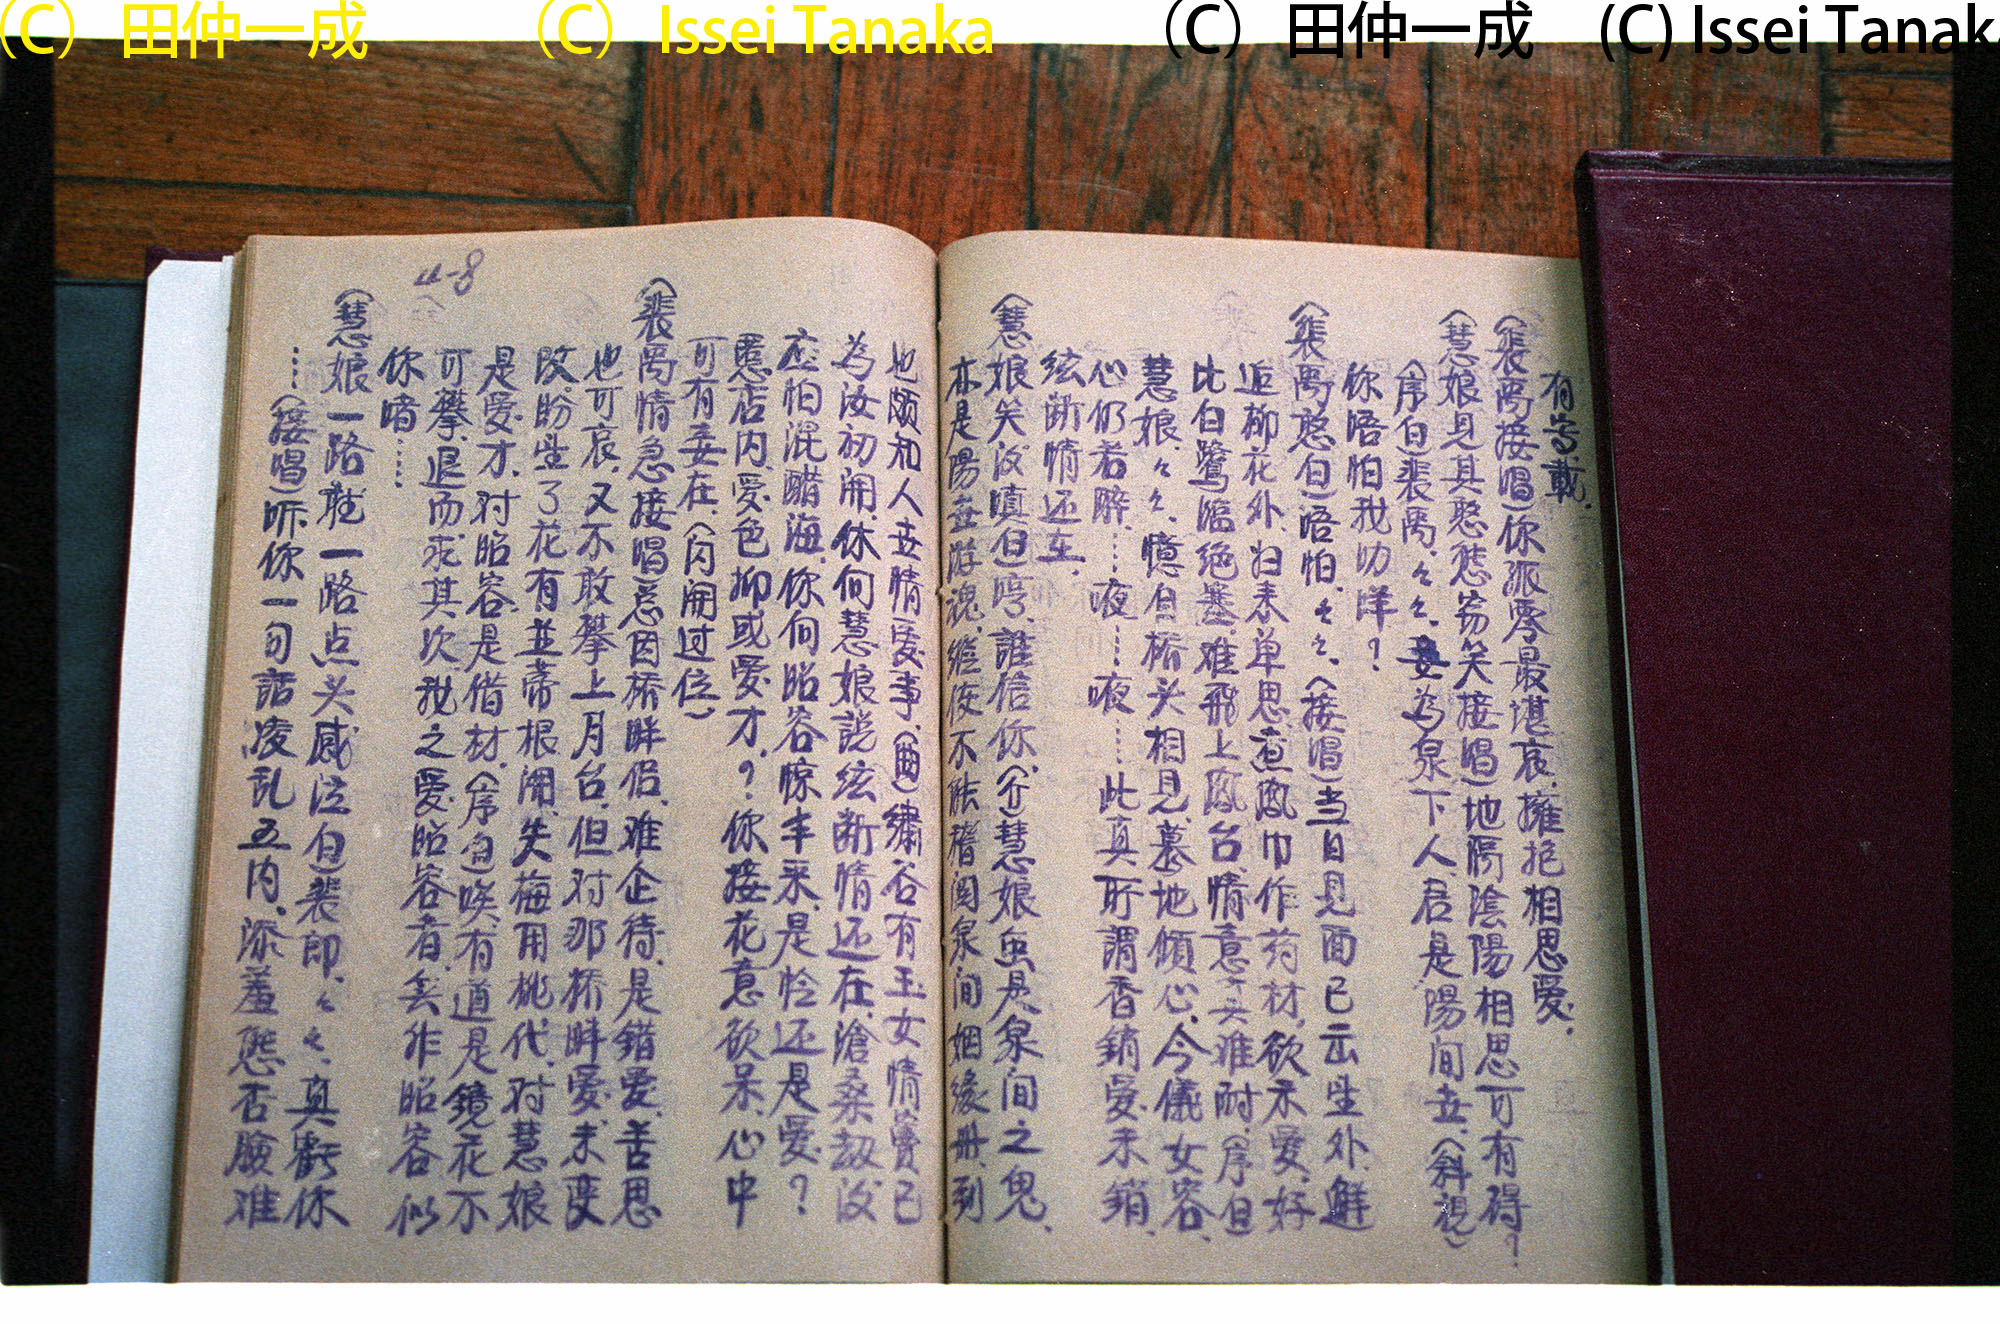 (C) 田仲一成 (C) Issei Tanaka (C) 田仲一成 (C) Issei Tanak
有当載.
(裴禹接唱)你派零最堪哀.擁抱相思愛.
(慧娘見其憨態窃笑接唱)地隔陰陽相思可有碍?
(序白)裴禹.々々.妾为泉下人.君是陽间世.(斜視)
你唔怕我叻咩?
(裴禹憨白)唔怕.々々.(接唱)当日見面已云生外.鮮
近柳花外.归来单思.煮凤巾作药材.欲求愛.好
比白鹭临绝塞.难飛上凤台.情意实难耐.(序白)
慧娘.々々.憶自桥头相見.蓦地傾心.今儀女容.
心仍者醉.……唉……唉……此真所謂香銷愛未銷.
絃断情还在.
(慧娘笑汝嗔白)哼.誰信你.(介)慧娘虽是泉间之鬼.
亦是陽世游魂.纏使不能稽阅泉间姻缘册.到
也颇知人世情爱事.(曲)繡谷有玉女情寳已
为汝初开.休向慧娘説絃断情还在.滄桑劫汝
应怕混醋海.你向昭容惊丰采.是怜还是爱?
慝店内.爱色抑或爱才.?你接花意欲呆.心中
可有妾在.(闪开过位)
(裴禹情急接唱)总因桥畔侣.难企待.是錯爱.苦思
也可哀.又不敢攀上月台.但对那桥畔爱.未变
改.盼生了花有並蒂根開.失梅用桃代.对慧娘
是爱才.对昭容是借材.(序白)唉.有道是鏡花不
可攀.退而求其次.我之爱昭容者.실作昭容似
你啫……
(慧娘一路听一路点头感泣白)裴郎.々々.真虧你
……(接唱)听你一句話凌乱五内.添羞態否臉难
4-8